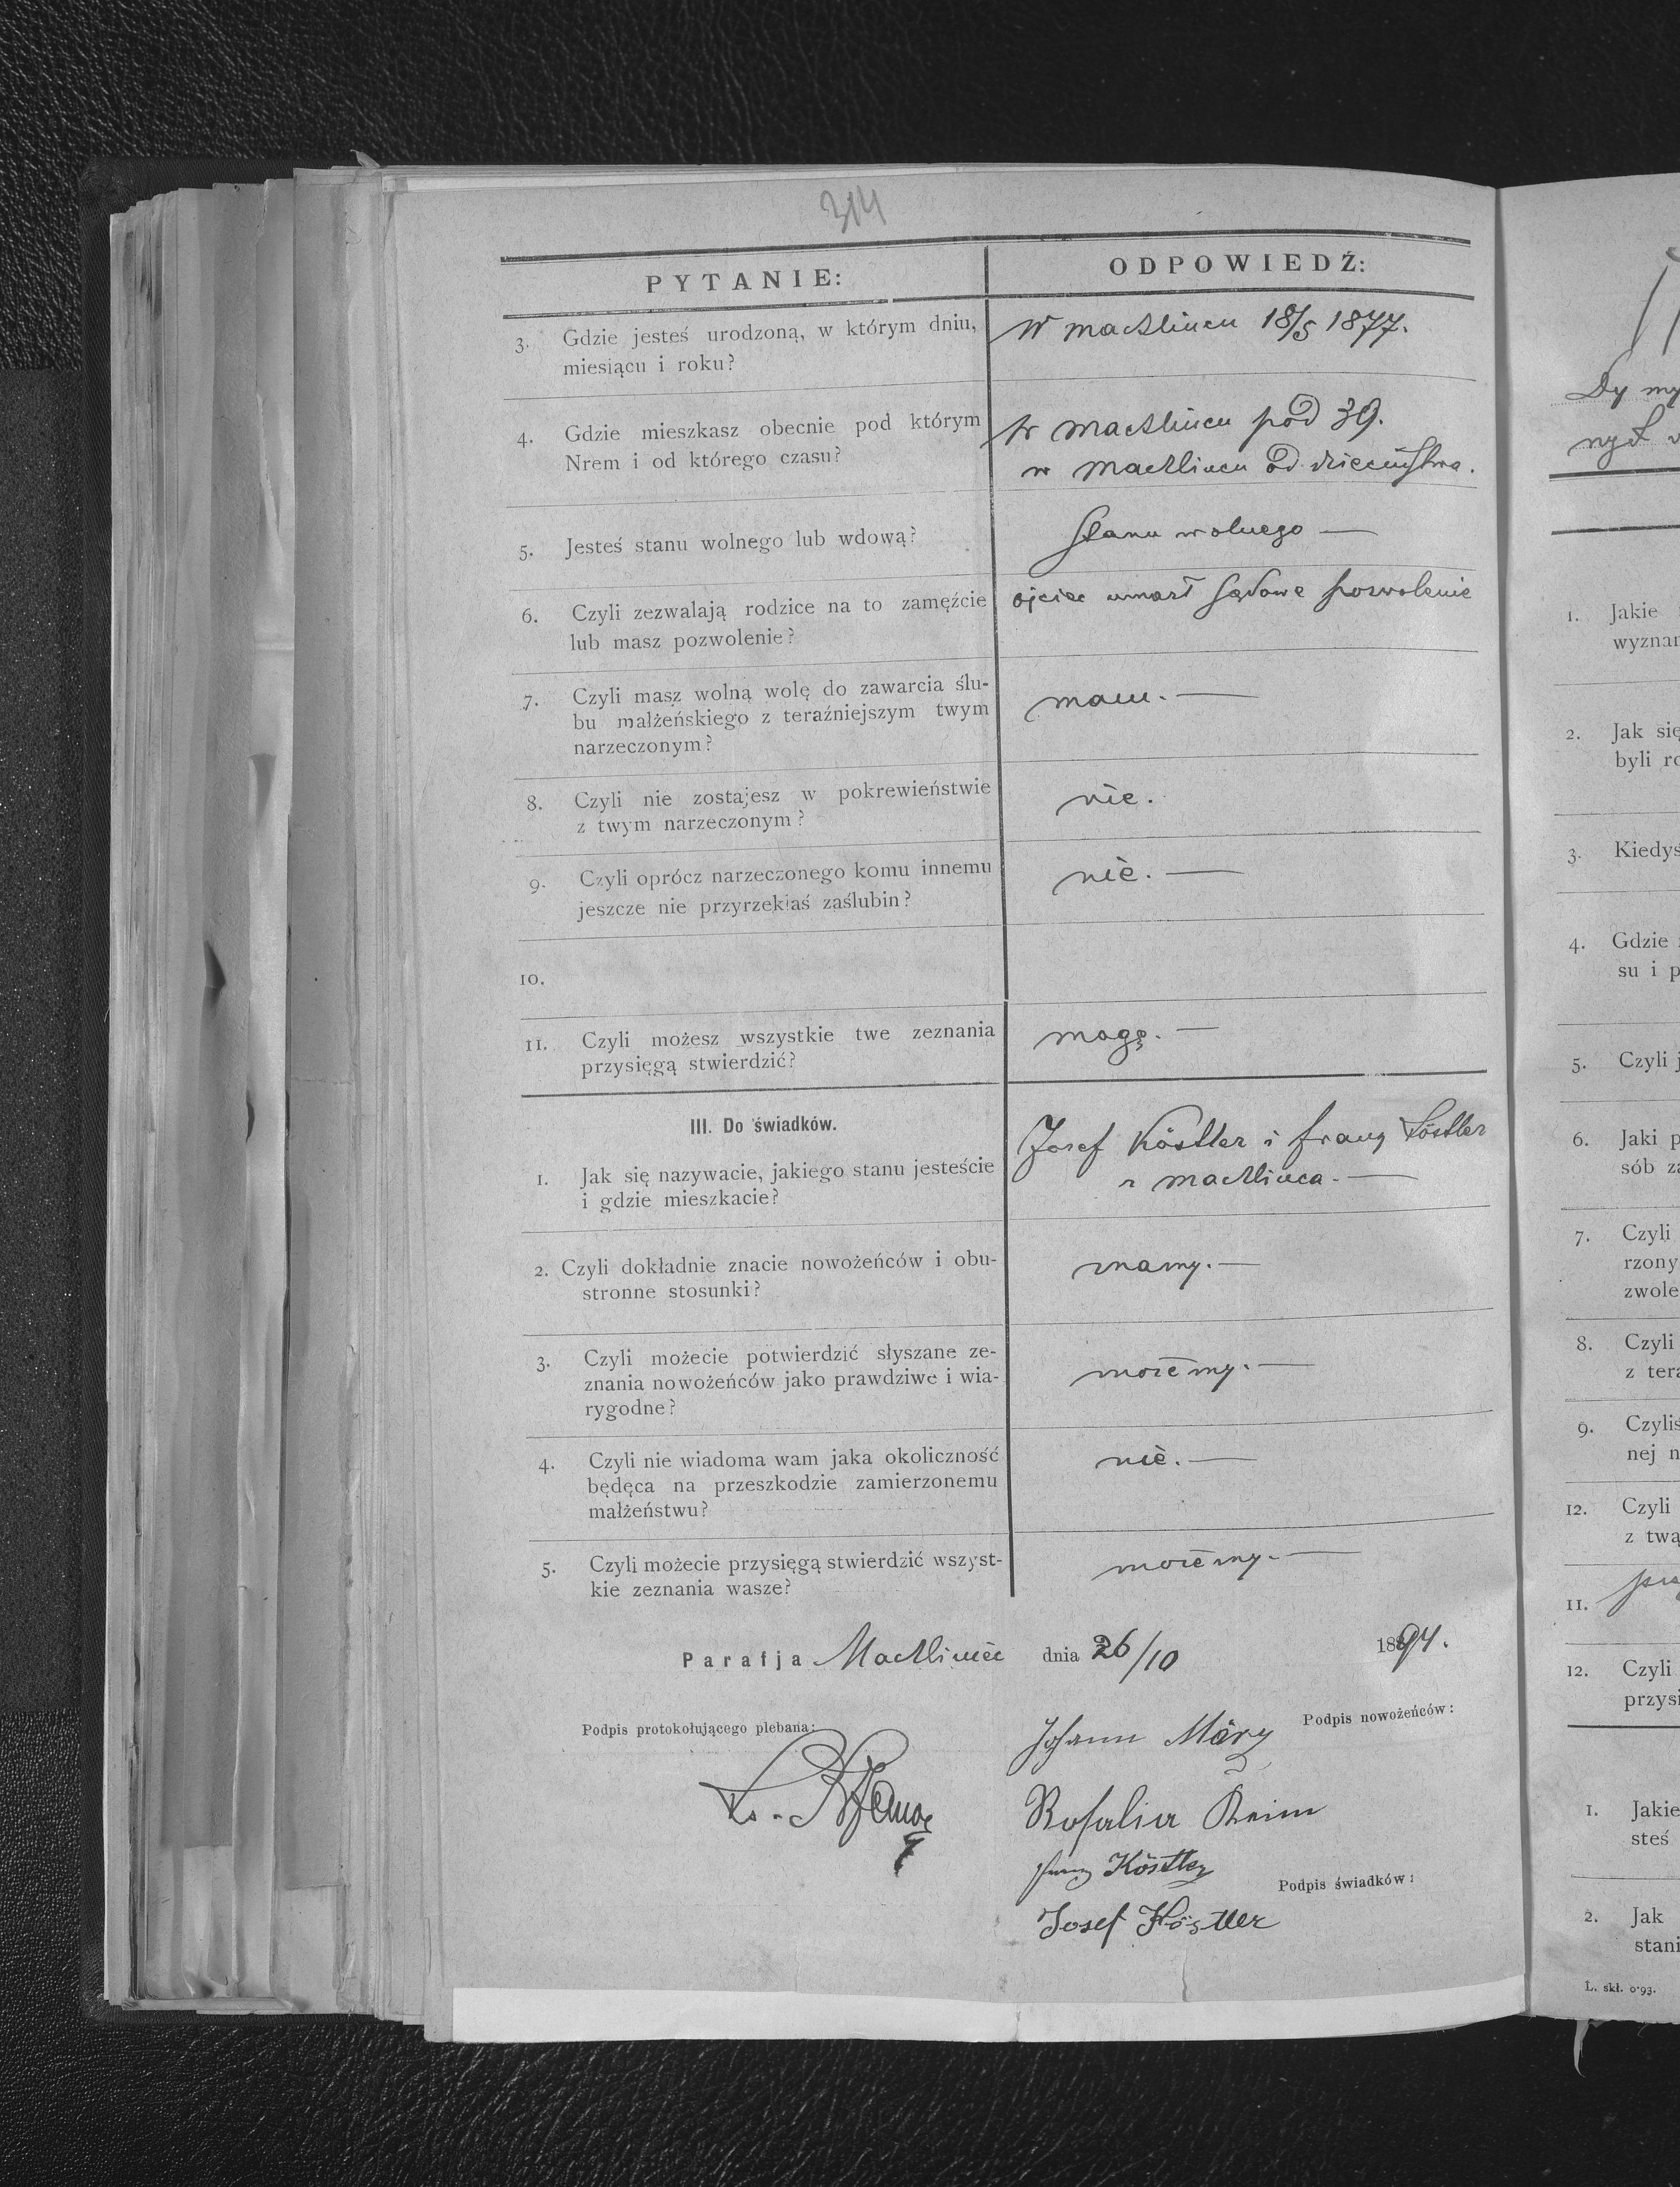 314
PYTANIE:
ODPOWIEDŹ:
3. Gdzie jesteś urodzoną, w którym dniu,
miesiącu i roku?
W Machlincu 18/5 1877.
4. Gdzie mieszkasz obecnie pod którym
Nrem i od którego czasu?
w Machlincu pod 39.
w Machlincu od dzieciństwa.
5. Jesteś stanu wolnego lub wdową?
stanu wolnego —
6. Czyli zezwalają rodzice na to zamęźcie
lub masz pozwolenie?
ojciec umarł sądowe pozwolenie
7. Czyli masz wolną wolę do zawarcia ślu-
bu małżeńskiego z teraźniejszym twym
narzeczonym?
mam. —
8. Czyli nie zostajesz w pokrewieństwie
z twym narzeczonym?
nie.
9. Czyli oprócz narzeczonego komu innemu
jeszcze nie przyrzekłaś zaślubin?
nie. —
10.
11. Czyli możesz wszystkie twe zeznania
przysięgą stwierdzić?
mogę. —
III. Do świadków.
1. Jak się nazywacie, jakiego stanu jesteście
i gdzie mieszkacie?
Josef Köstler i Franz Köstler
z Machlińca. —
2. Czyli dokładnie znacie nowożeńców i obu-
stronne stosunki?
znamy. —
3. Czyli możecie potwierdzić słyszane ze-
znania nowożeńców jako prawdziwe i wia-
rygodne?
możemy. —
4. Czyli nie wiadoma wam jaka okoliczność
będęca na przeszkodzie zamierzonemu
małżeństwu?
nie. —
5. Czyli możecie przysięgą stwierdzić wszyst-
kie zeznania wasze?
możemy. —
Parafja Machliniec dnia 26/10 1894.
Podpis protokołującego plebana:
Podpis nowożeńców:
Johann März
Rosalia Reim
Franz Köstler
Podpis świadków:
Josef Köstler
Dy my
nych
1. Jakie
wyznan
2. Jak się
byli ro
3. Kiedyś
4. Gdzie
su i p
5. Czyli j
6. Jaki p
sób za
7. Czyli
rzony
zwole
8. Czyli
z tera
9. Czyliś
nej n
12. Czyli
z twą
11.
12. Czyli
przysi
1. Jakie
steś
2. Jak
stani
L. skł. 0·93.